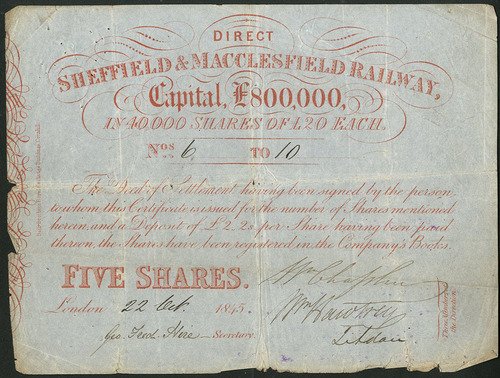 DIRECT
SHEFFIELD & MACCLESFIELD RAILWAY,
Capital, £800,000,
IN 40,000 SHARES OF £20 EACH.
Nos 6 TO 10
The Deed of Settlement having been signed by the person
to whom this Certificate is issued for the number of Shares mentioned
herein, and a Deposit of £2. 2s. per Share having been paid
thereon, the Shares have been registered in the Company's Books.
FIVE SHARES.
London 22 Oct. 1845.
Geo. Fredk. Secretary.
Wm Chaplin
Wm Hawtrey
Three Members of
the Direction.